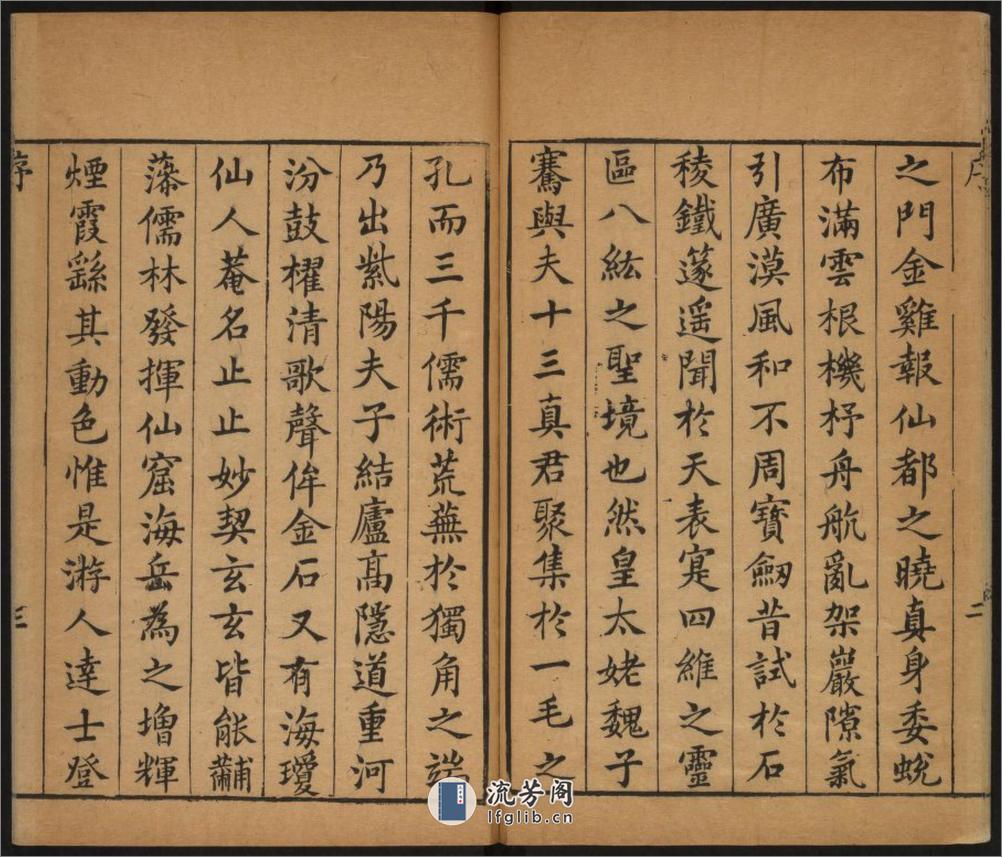 序
二
之門金雞報仙都之曉真身委蛻
布滿雲根機杼舟航亂架巖隙氣
引廣漠風和不周寶劒昔試於石
稜鐵篴遥聞於天表寔四維之靈
區八紘之聖境也然皇太姥魏子
騫與夫十三真君聚集於一毛之
孔而三千儒術荒蕪於獨角之端
乃出紫陽夫子結廬高隱道重河
汾鼓櫂清歌聲侔金石又有海瓊
仙人菴名止止妙契玄玄皆能黼
藻儒林發揮仙窟海岳為之增輝
煙霞繇其動色惟是游人達士登
序
三
流芳阁
lfglib.cn